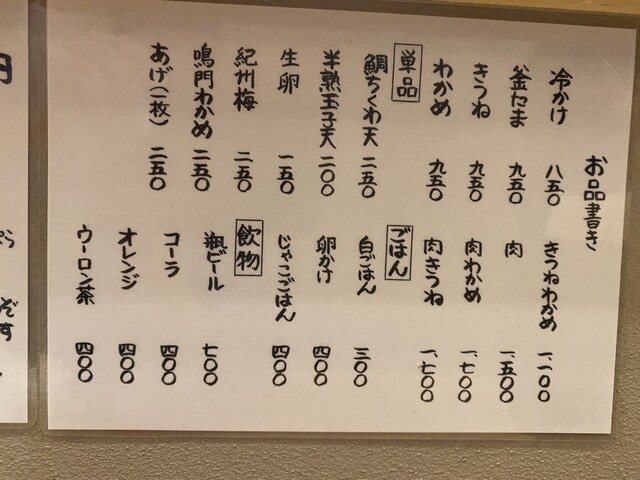 お品書き
冷かけ 八五〇
釜たま 九五〇
きつね 九五〇
わかめ 九五〇
単品
鯛ちくわ天 二五〇
半熟玉子天 二〇〇
生卵 一五〇
紀州梅 二五〇
鳴門わかめ 二五〇
あげ(一枚) 二五〇
きつねわかめ 一、一〇〇
肉 一、五〇〇
肉わかめ 一、七〇〇
肉きつね 一、七〇〇
ごはん
白ごはん 三〇〇
卵かけ 四〇〇
じゃこごはん 四〇〇
飲物
瓶ビール 七〇〇
コーラ 四〇〇
オレンジ 四〇〇
ウーロン茶 四〇〇